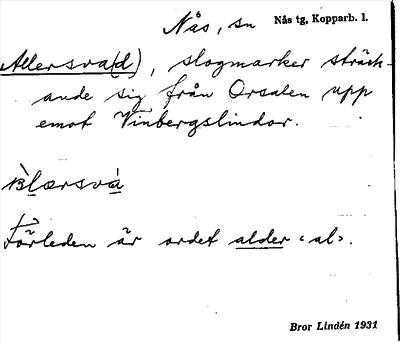 Nås, sn Nås tg, Kopparb. l.
Allersva(d), slogmarker sträck-
ande sig från Orsalen upp
emot Vinbergslindor.
Förleden är ordet alder <al>.
Bror Lindén 1931